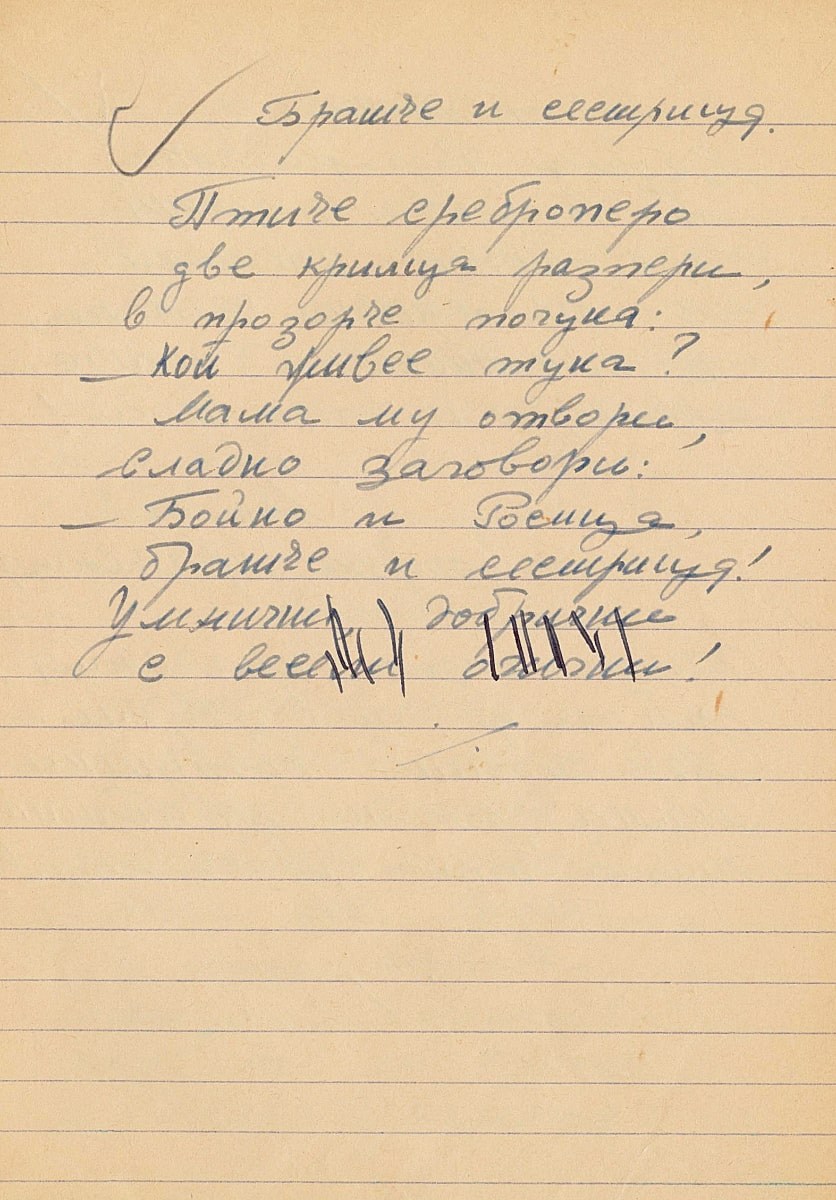 Братче и сестрица.
Птиче среброперо
две крилца разпери,
в прозорче почука:
– Кой живее тука?
Мама му отвори,
сладко заговори:
– Бойко и Росица,
братче и сестрица!
Умнички, добрички
с весели очички!